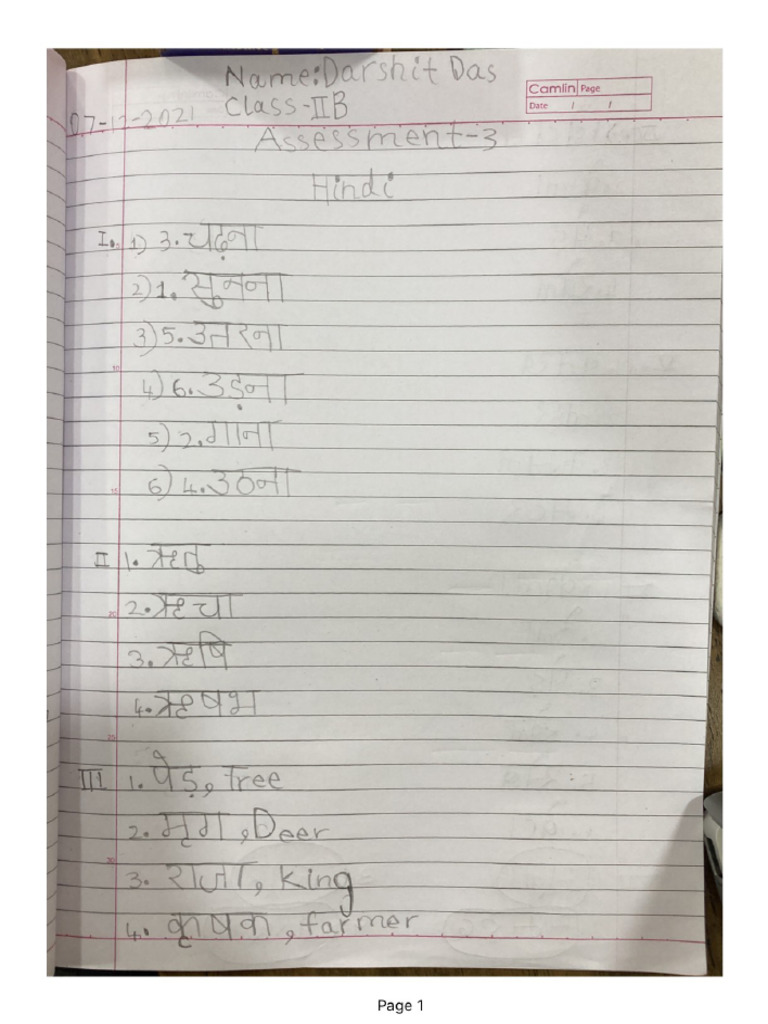 Name:Darshit Das
Camlin Page
Date / /
07-12-2021 Class-IIB
Assessment-3
Hindi
I. 1) 3.चढ़ना
2) 1.सुनना
3) 5.उतरना
4) 6.उड़ना
5) 2.गाना
6) 4.उठना
II 1.ऋतु
2.ऋचा
3.ऋषि
4.ऋषभ
III 1.पेड़, Tree
2.मृग, Deer
3.राजा, king
4.कृषक, farmer
Page 1